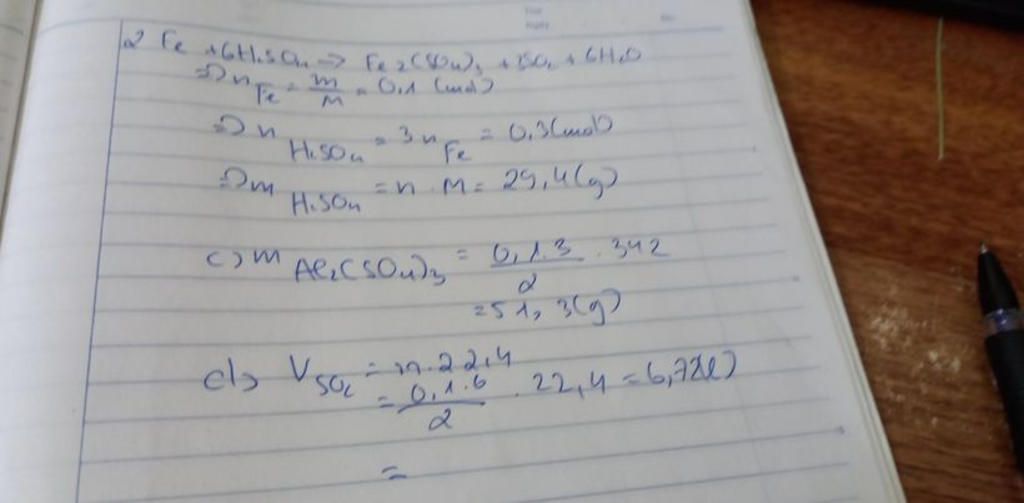 2Fe + 6H₂SO₄ → Fe₂(SO₄)₃ + 3SO₂ + 6H₂O
⇒ n Fe = m/M = 0,1 (mol)
⇒ n H₂SO₄ = 3 n Fe = 0,3 (mol)
⇒ m H₂SO₄ = n . M = 29,4 (g)
c) m Al₂(SO₄)₃ = 0,1.3/2 . 342
= 51,3 (g)
d) V SO₂ = n . 22,4
= 0,1.6/2 . 22,4 = 6,72(l)
=